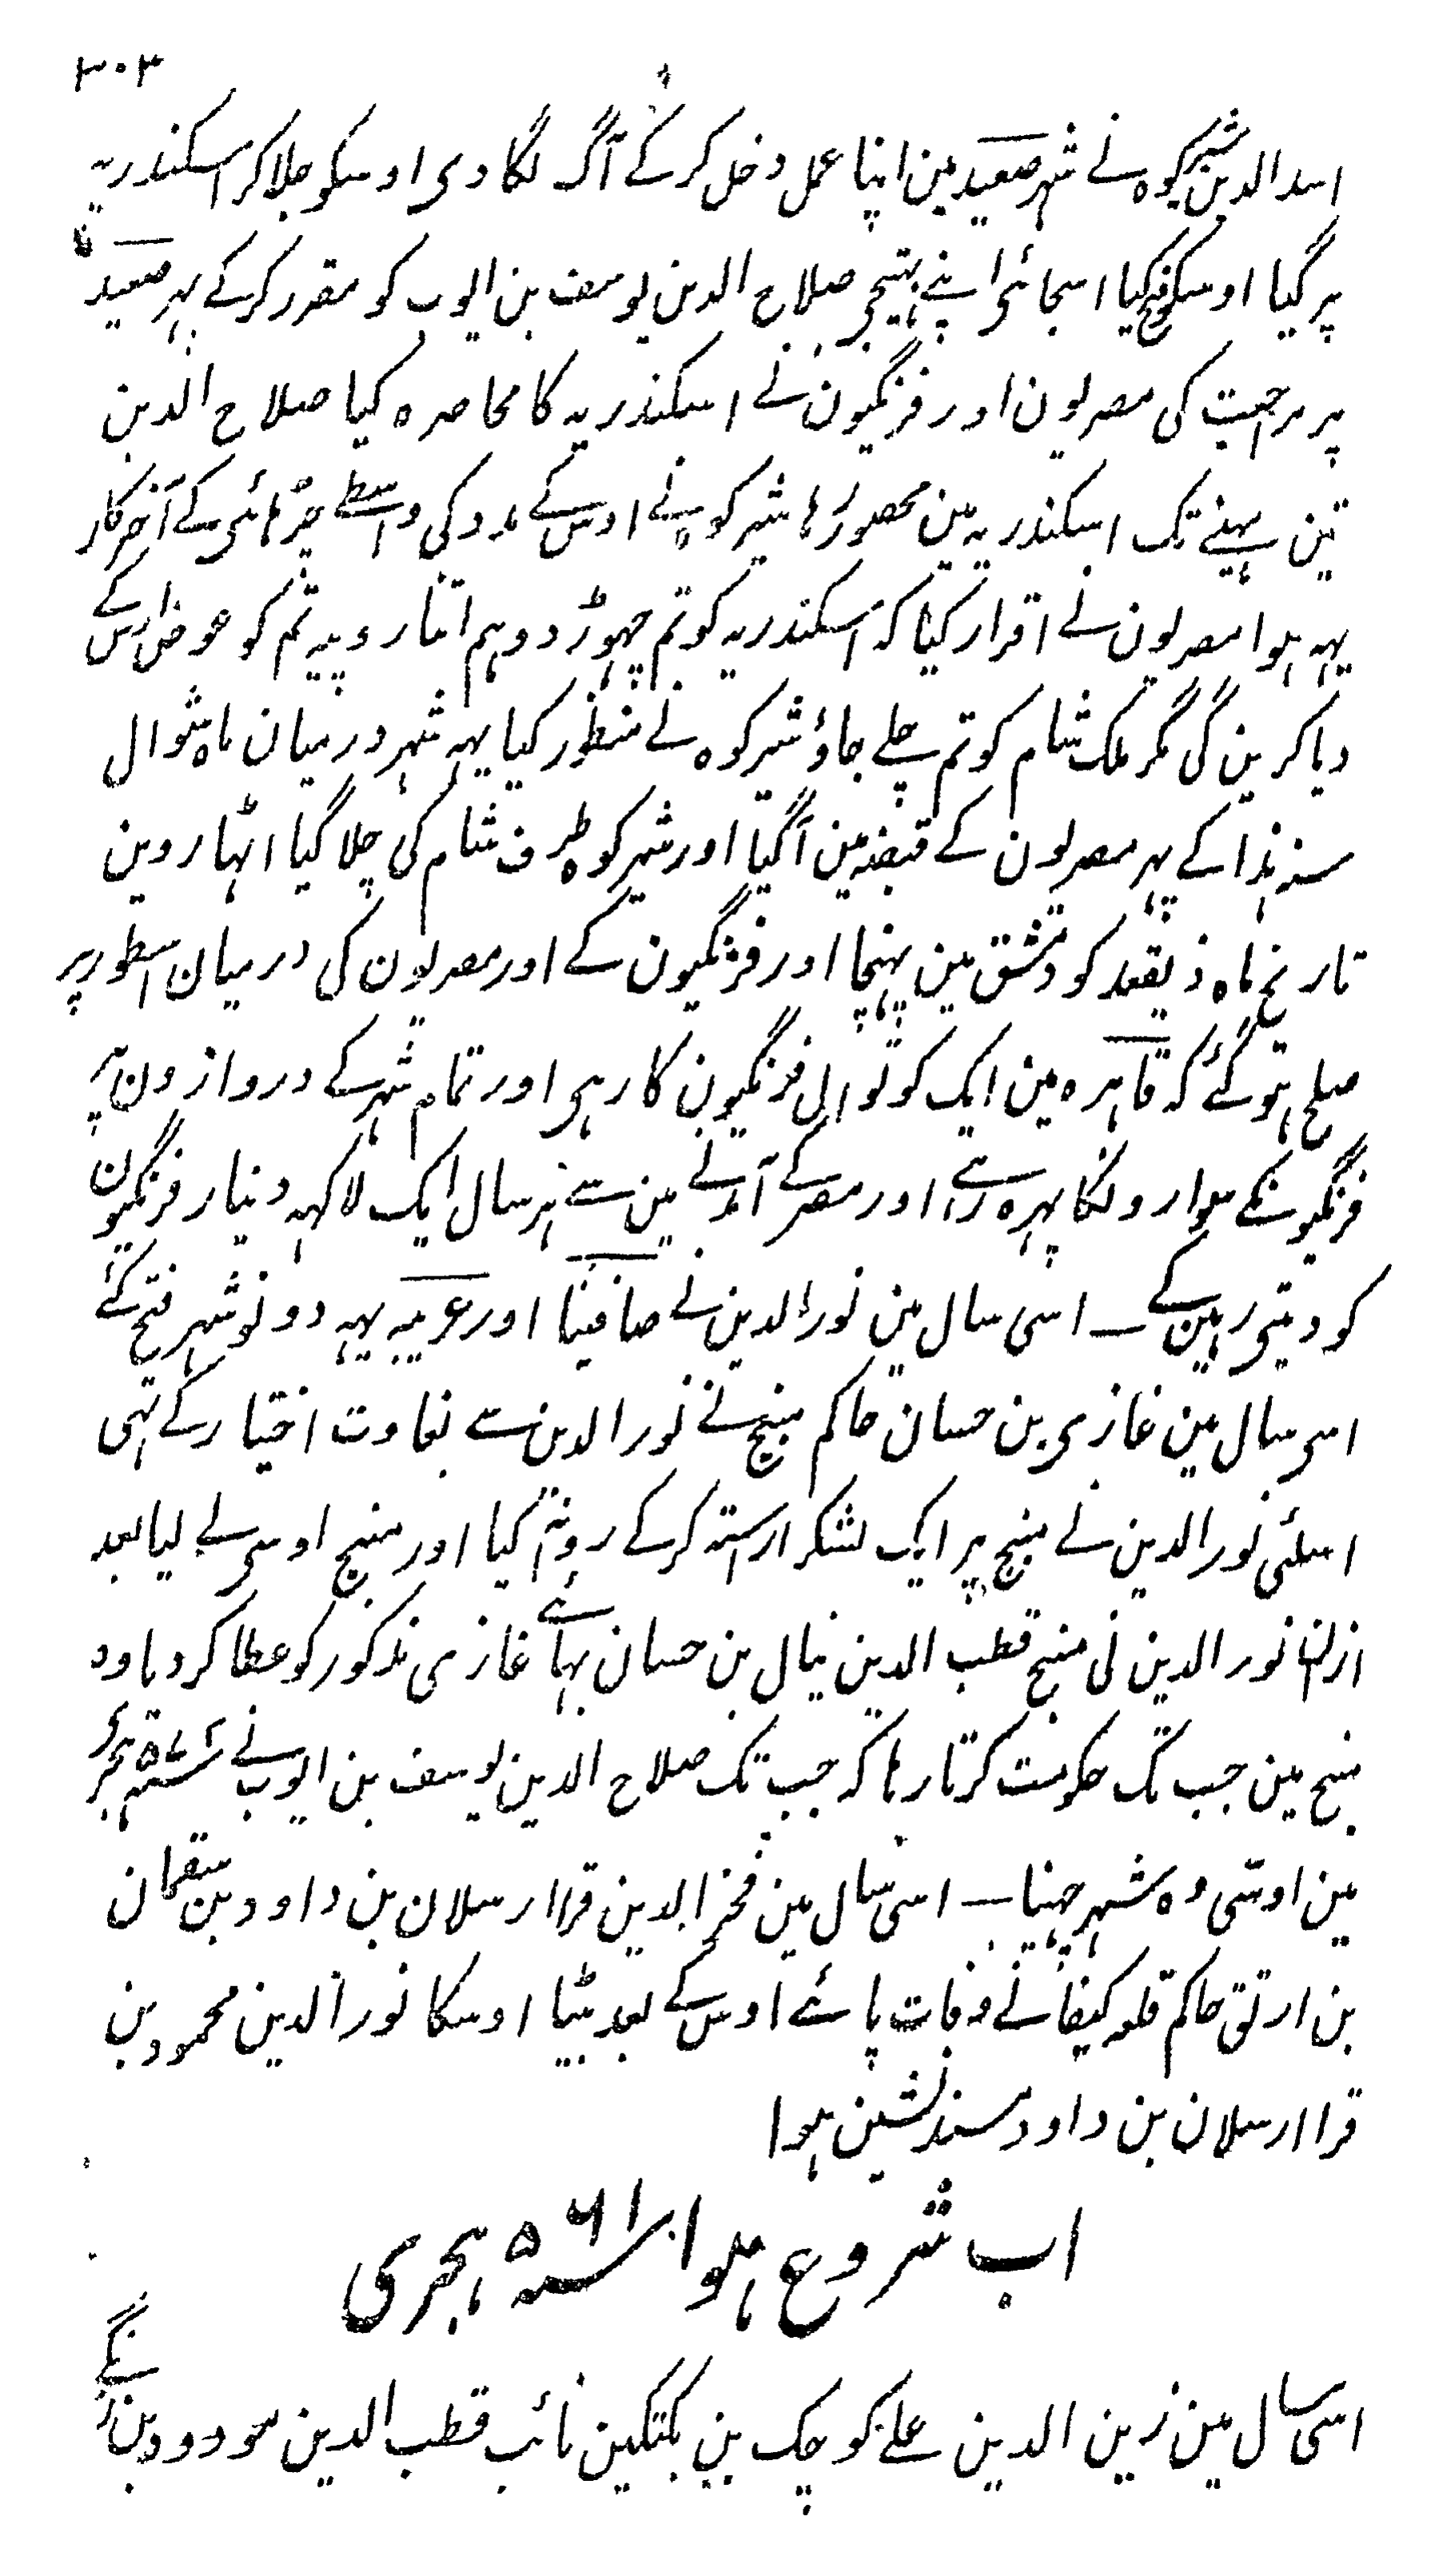 ۳۰۳
اسد الدین شیرکوہ نے شہر صعید مین اپنا عمل دخل کر کے آگ لگا دی اوسکو جلا کر اسکندریہ
پر گیا اوسکو فتح کیا اسجائی اپنے بہتیجی صلاح الدین یوسف بن ایوب کو مقرر کر کے پہر صعید
پر مرجعت کی مصریون اور فرنگیون نے اسکندریہ کا محاصرہ کیا صلاح الدین
تین مہینے تک اسکندریہ مین محصور رہا شیرکوہ نے اوس کے مدد کی واسطے چڑہائی کے آخر کار
یہہ ہوا مصریون نے اقرار کیا کہ اسکندریہ کو تم چہوڑ دو ہم اتنا روپیہ تم کو عوض اوس کے
دیا کرین گی مگر ملک شام کو تم چلے جاؤ شیرکوہ نے منظور کیا یہہ شہر درمیان ماہ شوال
سنہ ہذا کے پہر مصریون کے قبضہ مین آگیا اور شیرکوہ طرف شام کی چلا گیا اٹہاروین
تاریخ ماہ ذیقعد کو دمشق مین پہنچا اور فرنگیون کے اور مصریون کی درمیان اسطور پر
صلح ہو گئے کہ قاہرہ مین ایک کوتوال فرنگیون کا رہی اور تمام شہر کے دروازون پر
فرنگیونکے سوارونکا پہرہ رہے اور مصر کے آمدنے مین سے ہر سال ایک لاکہہ دینار فرنگیون
کو دیتی رہین کے ــ اسی سال مین نور الدین نے صافیتا اور عریمہ یہہ دونو شہر فتح کئے
اسی سال مین غازی بن حسان حاکم منبج نے نور الدین سے بغاوت اختیار کے تہی
اسلئی نور الدین نے منبج پر ایک لشکر اراستہ کر کے روانہ کیا اور منبج اوسی لے لیا بعد
ازان نور الدین نی منبج قطب الدین نیال بن حسان بہائے غازی مذکور کو عطا کر دیا وہ
منبح مین جب تک حکومت کرتا رہا کہ جب تک صلاح الدین یوسف بن ایوب نے ۵۷۲ ہجری
مین اوسی وہ شہر چہنیا ــ اسی سال مین فخر الدین قرا ارسلان بن داود بن سقمان
بن ارتق حاکم قلعہ کیفا نے وفات پائے اوس کے بعد بیٹا اوسکا نور الدین محمود بن
قرا ارسلان بن داود مسند نشین ہوا
اب شروع ہوا سنہ ۵۶۱ ہجری
اسی سال مین زین الدین علے کوچک بن بکتکین نائب قطب الدین مودود بن زنگے